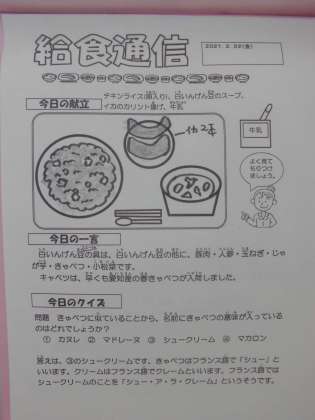 給食通信
2021. 2. 26(金)
今日の献立
チキンライス(麦入り)、白いんげん豆のスープ、
イカのカリント揚げ、牛乳
牛乳
よく見て
もりつけ
ましょう。
今日の一言
白いんげん豆の具は、白いんげん豆の他に、豚肉・人参・玉ねぎ・じゃ
が芋・きゃべつ・小松菜です。
キャベツは、早くも愛知産の春きゃべつが入荷しました。
今日のクイズ
問題 きゃべつに似ていることから、名前にきゃべつの意味が入っている
のはどれでしょうか?
① カヌレ ② マドレーヌ ③ シュークリーム ④ マカロン
答えは、③のシュークリームです。きゃべつはフランス語で「シュー」と
いいます。クリームはフランス語でクレームといいます。フランス語では
シュークリームのことを「シュー・ア・ラ・クレーム」というそうです。